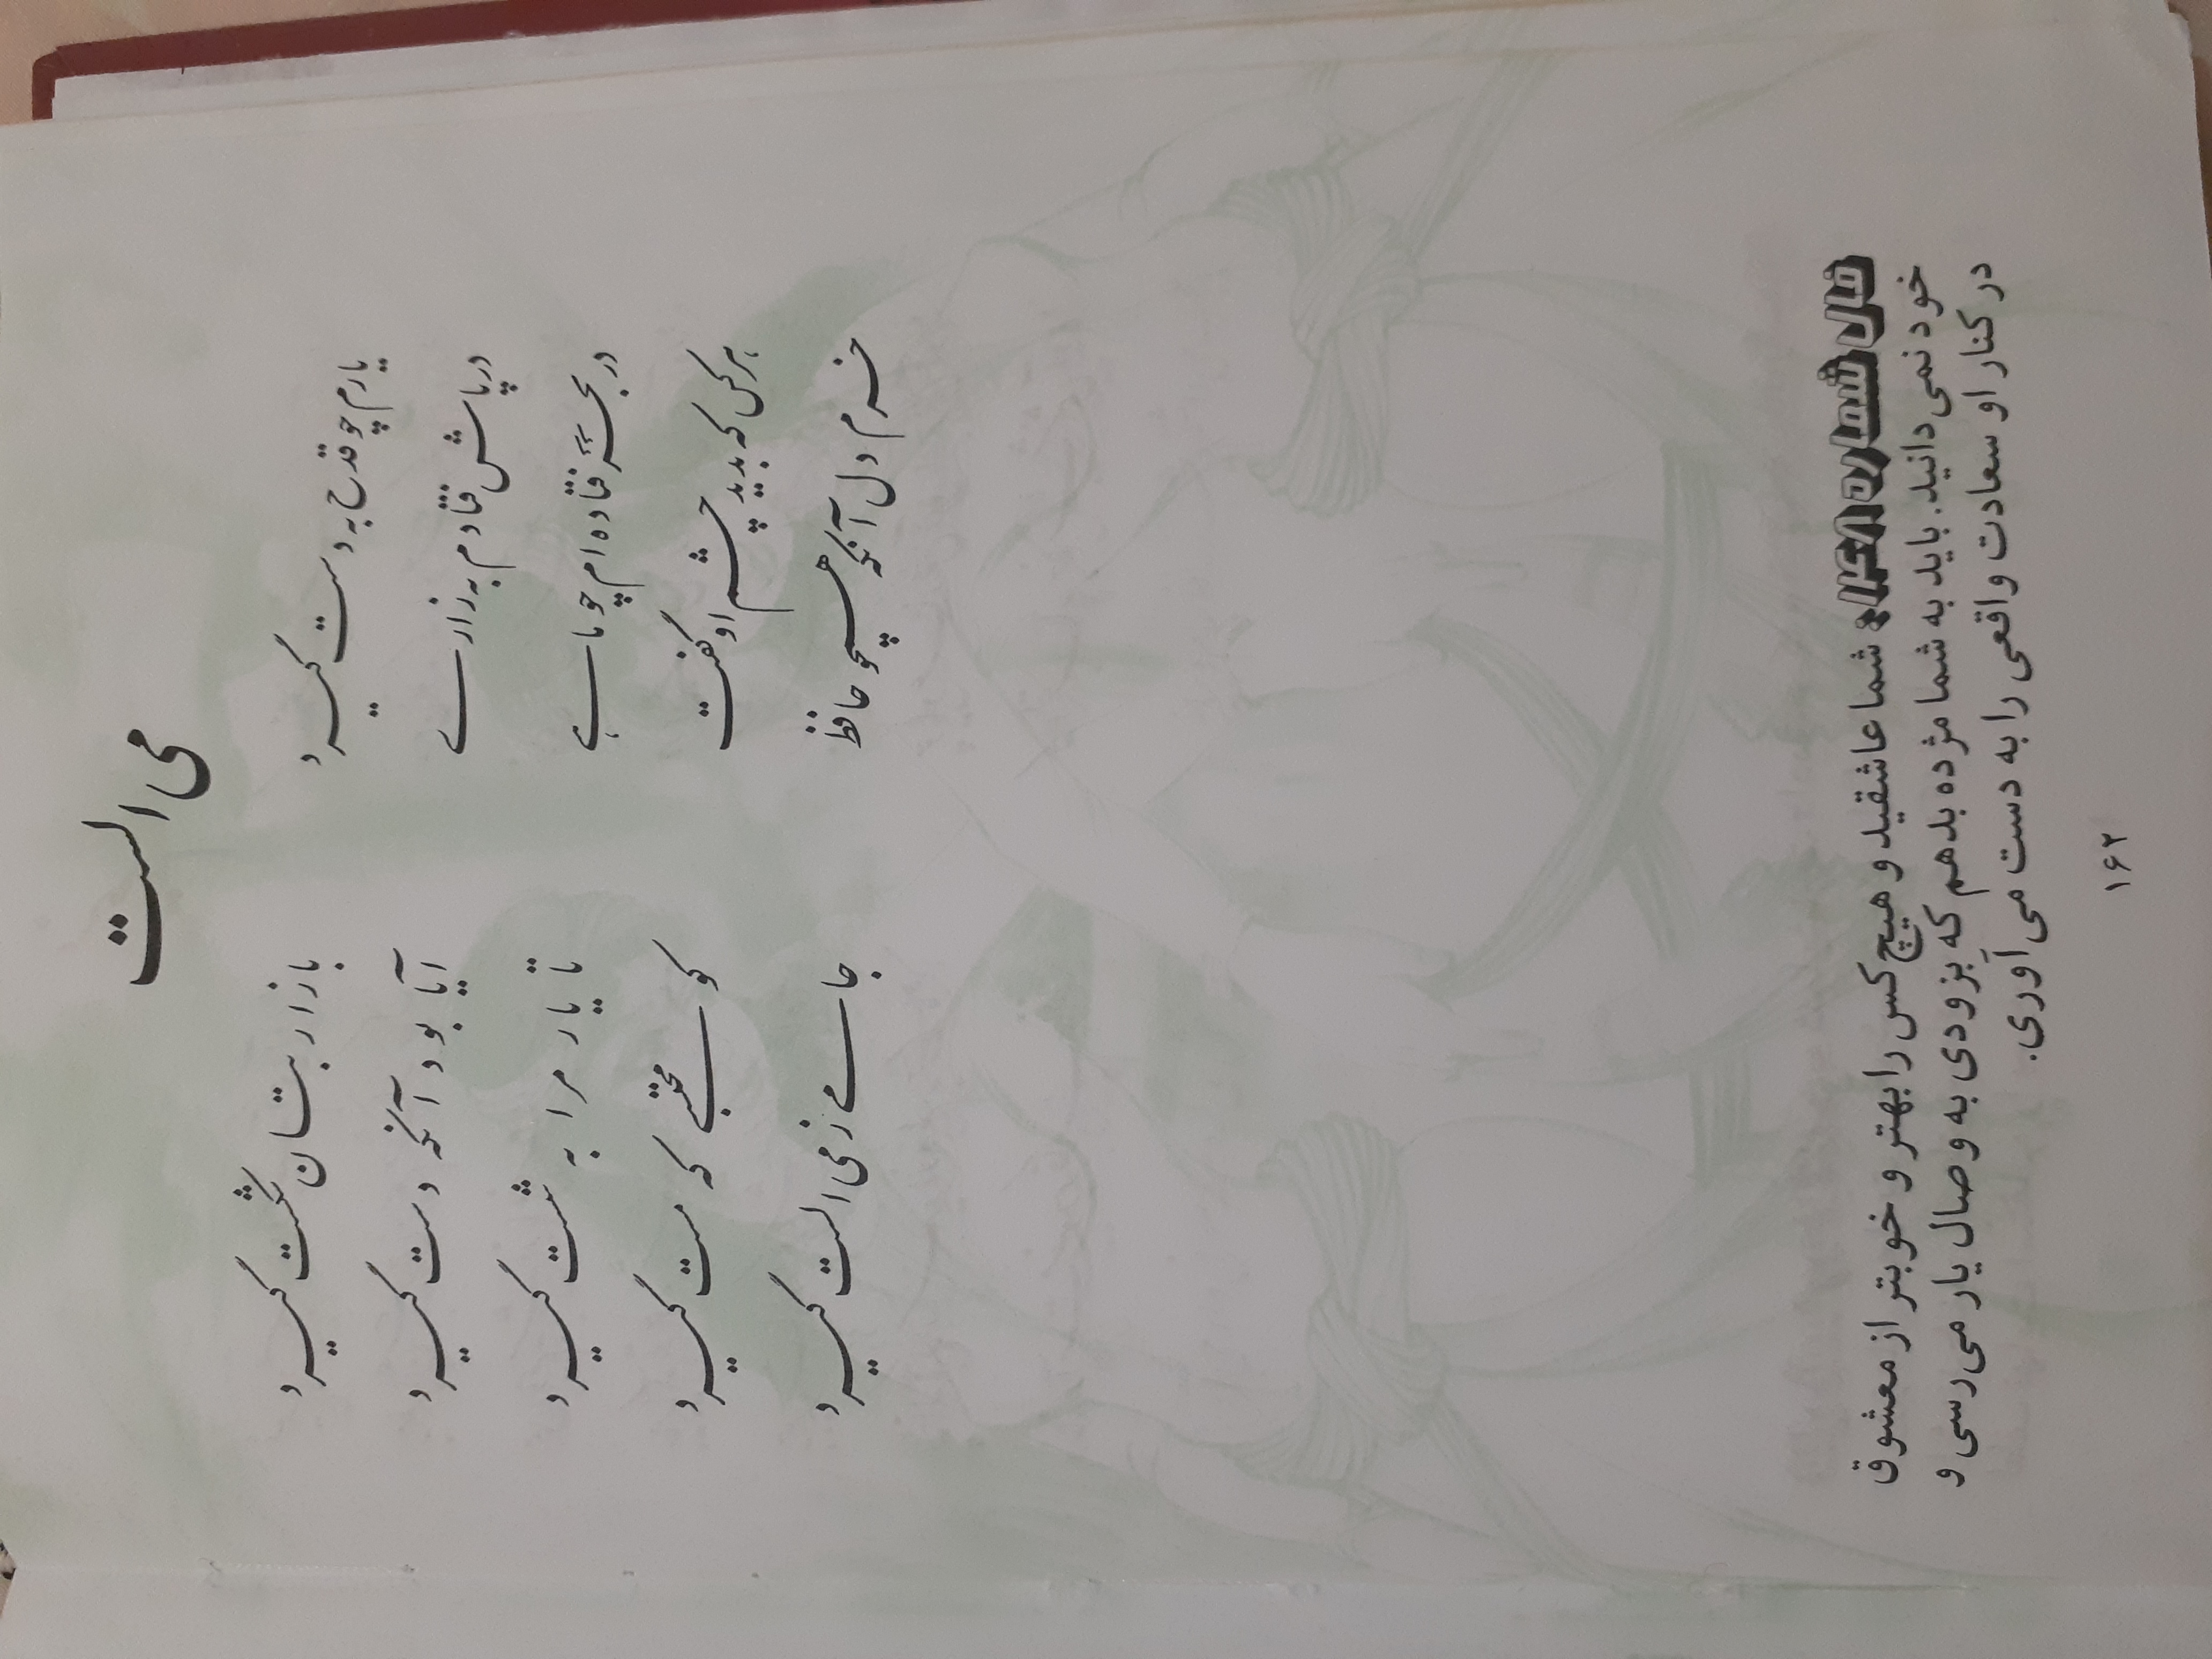 می الست
یارم چو قدح به دست گیرد بازار بتان شکست گیرد
در پاش فتاده‌ام به زاری آیا بود آنکه دست گیرد
در بحر فتاده‌ام چو ماهی تا یار مرا به شست گیرد
هر کس که بدید چشم او گفت کو محتسبی که مست گیرد
خرم دل آنکه همچو حافظ جامی ز می الست گیرد
شما عاشقید و هیچ کس را بهتر و خوبتر از معشوق
خود نمی دانید. باید به شما مژده بدهم که بزودی به وصال یار می‌رسی و
در کنار او سعادت واقعی را به دست می‌آوری.
۱۶۲